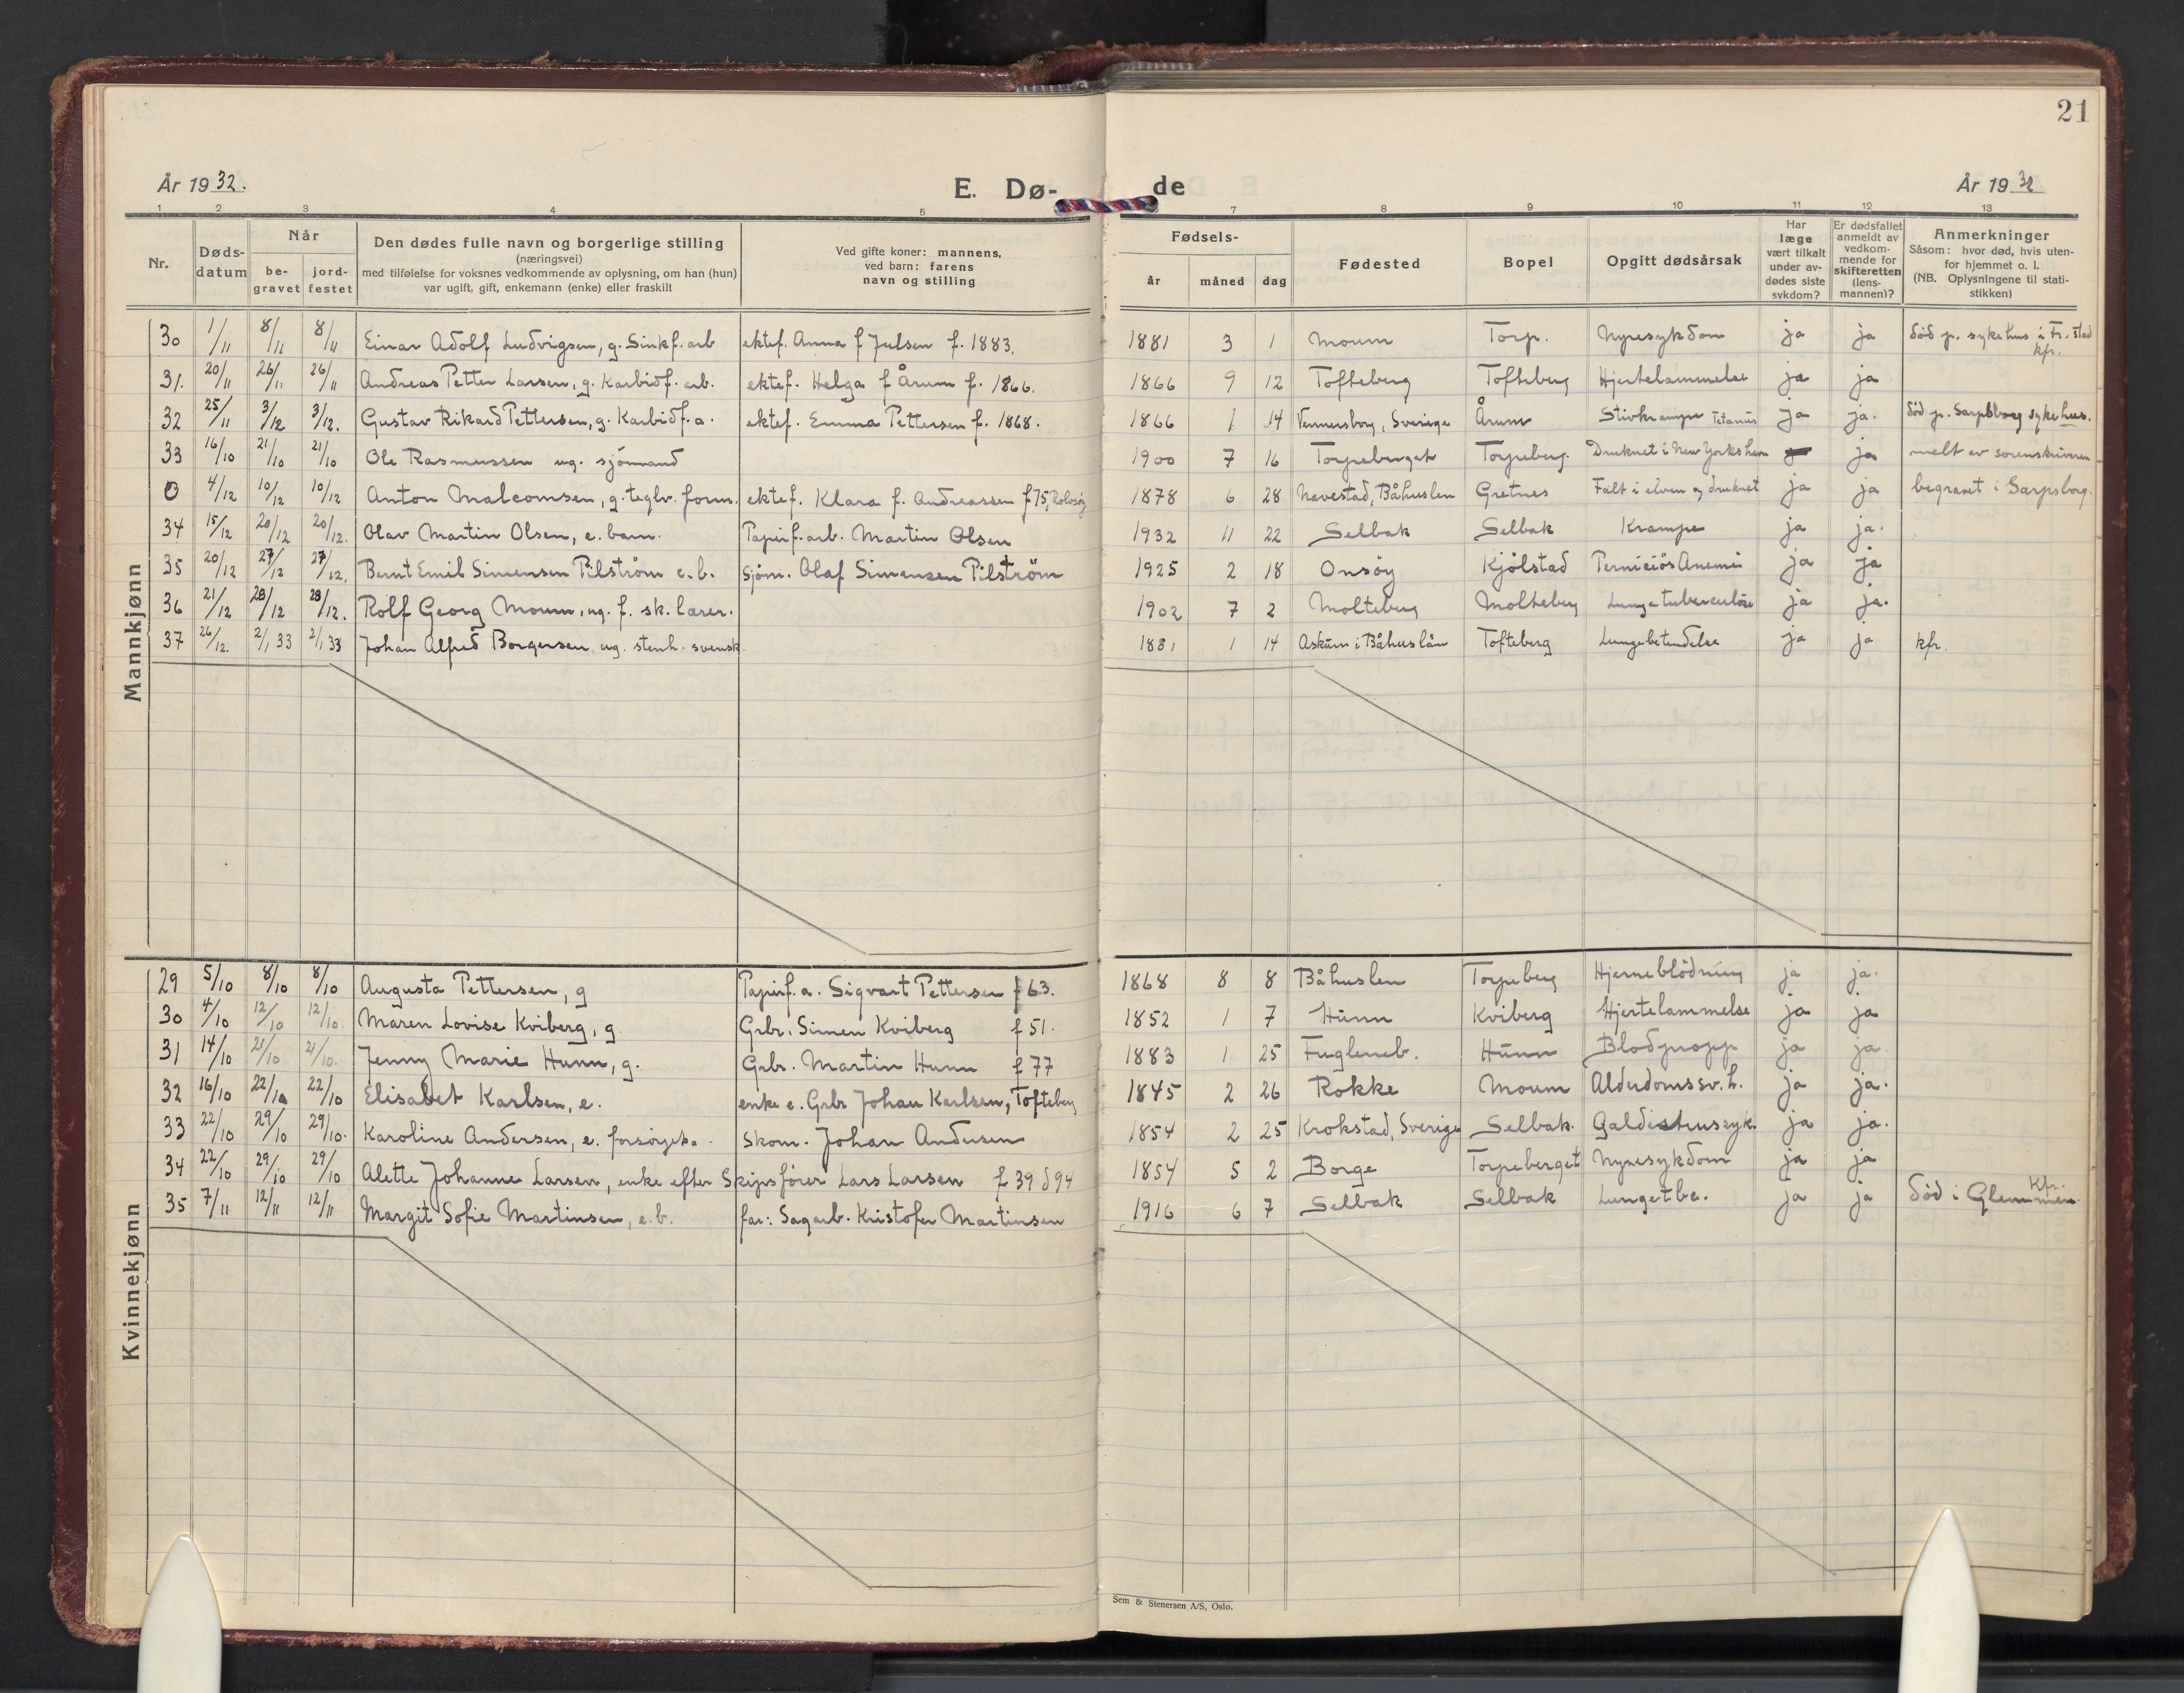 21
År 1932.
E. Dø-
de
År 1932
1 2 3 4 5 7 8 9 10 11 12 13
Nr.
Døds-datum
Når
be-gravet
jord-festet
Den dødes fulle navn og borgerlige stilling
(næringsvei)
med tilføielse for voksnes vedkommende av oplysning, om han (hun)
var ugift, gift, enkemann (enke) eller fraskilt
Ved gifte koner: mannens,
ved barn: farens
navn og stilling
Fødsels-
år måned dag
Fødested
Bopel
Opgitt dødsårsak
Har læge vært tilkalt under av-dødes siste sykdom?
Er dødsfallet anmeldt av vedkom-mende for skifteretten (lens-mannen)?
Anmerkninger
Såsom: hvor død, hvis uten-
for hjemmet o. l.
(NB. Oplysningene til stati-
stikken)
Mannkjønn
30 1/11 8/11 8/11 Einar Adolf Ludvigsen, g. Sinkf. arb ektef. Anna f Julsen f. 1883. 1881 3 1 Moum Torp. Nyresykdom ja ja død p. sykehus i Fr.stad kfr.
31. 20/11 26/11 26/11 Andreas Petter Larsen, g. Karbidf. arb. ektef. Helga f Årum f. 1866. 1866 9 12 Tofteberg Tofteberg Hjertelammelse ja ja
32 25/11 3/12 3/12. Gustav Rikard Pettersen, g. Karbidf. a. ektef. Emma Pettersen f. 1868. 1866 1 14 Vennersborg, Sverige Årum Stivkrampe Tetanus ja ja. død p. Sarpsborg sykehus.
33 16/10 21/10 21/10 Ole Rasmussen ug. sjømand 1900 7 16 Torpeberget Torpeberg. Druknet i New Yorks havn ja melt av sorenskriveren
0 4/12 10/12 10/12 Anton Malcomsen, g. teglv. form. ektef. Klara f. Andreassen f 75, Rolvsøy 1878 6 28 Navestad, Båhuslen Gretnes Falt i elven og druknet ja ja begravet i Sarpsborg.
34 15/12 20/12 20/12. Olav Martin Olsen, e. barn. Papirf. arb. Martin Olsen 1932 11 22 Selbak Selbak Krampe ja ja.
35 20/12 27/12 27/12. Bernt Emil Simensen Pilstrøm e. b. Sjøm. Olaf Simensen Pilstrøm 1925 2 18 Onsøy Kjølstad Perniciøs Anemi ja ja
36 21/12 28/12 28/12. Rolf Georg Moum, ug. f. sk. lærer. 1902 7 2 Molteberg Molteberg Lungetuberculose ja ja.
37 26/12. 2/1 33 2/1 33 Johan Alfred Borgersen, ug. stenh. svensk 1881 1 14 Askum i Båhuslän Tofteberg Lungebetendelse ja ja kfr.
Kvinnekjønn
29 5/10 8/10 8/10 Augusta Pettersen, g Papirf. a. Sigvart Pettersen f 63. 1868 8 8 Båhuslen Torpeberg Hjerneblødning ja ja.
30 4/10 12/10 12/10. Maren Lovise Kviberg, g. Grbr. Simen Kviberg f 51. 1852 1 7 Hunn Kviberg Hjertelammelse ja ja
31 14/10 21/10 21/10. Jenny Marie Hunn, g. Grbr. Martin Hunn f 77 1883 1 25 Fugleneb. Hunn Blodpropp ja ja
32 16/10 22/10 22/10 Elisabet Karlsen, e. enke e. Grbr Johan Karlsen, Tofteberg 1845 2 26 Rokke Moum Alderdomssv.h. ja ja.
33 22/10 29/10 29/10. Karoline Andersen, e. forsørget a. Skom. Johan Andersen 1854 2 25 Krokstad, Sverige Selbak. Galdestenssyk. ja ja.
34 22/10 29/10 29/10 Alette Johanne Larsen, enke efter Skipsfører Lars Larsen f 39 d 94 1854 5 2 Borge Torpeberget Nyresykdom ja ja
35 7/11 12/11 12/11 Margit Sofie Martinsen, e. b. far: Sagarb. Kristofer Martinsen 1916 6 7 Selbak Selbak Lungetbe. ja ja død i Glemmen Kfr.
Sem & Stenersen A/S, Oslo.